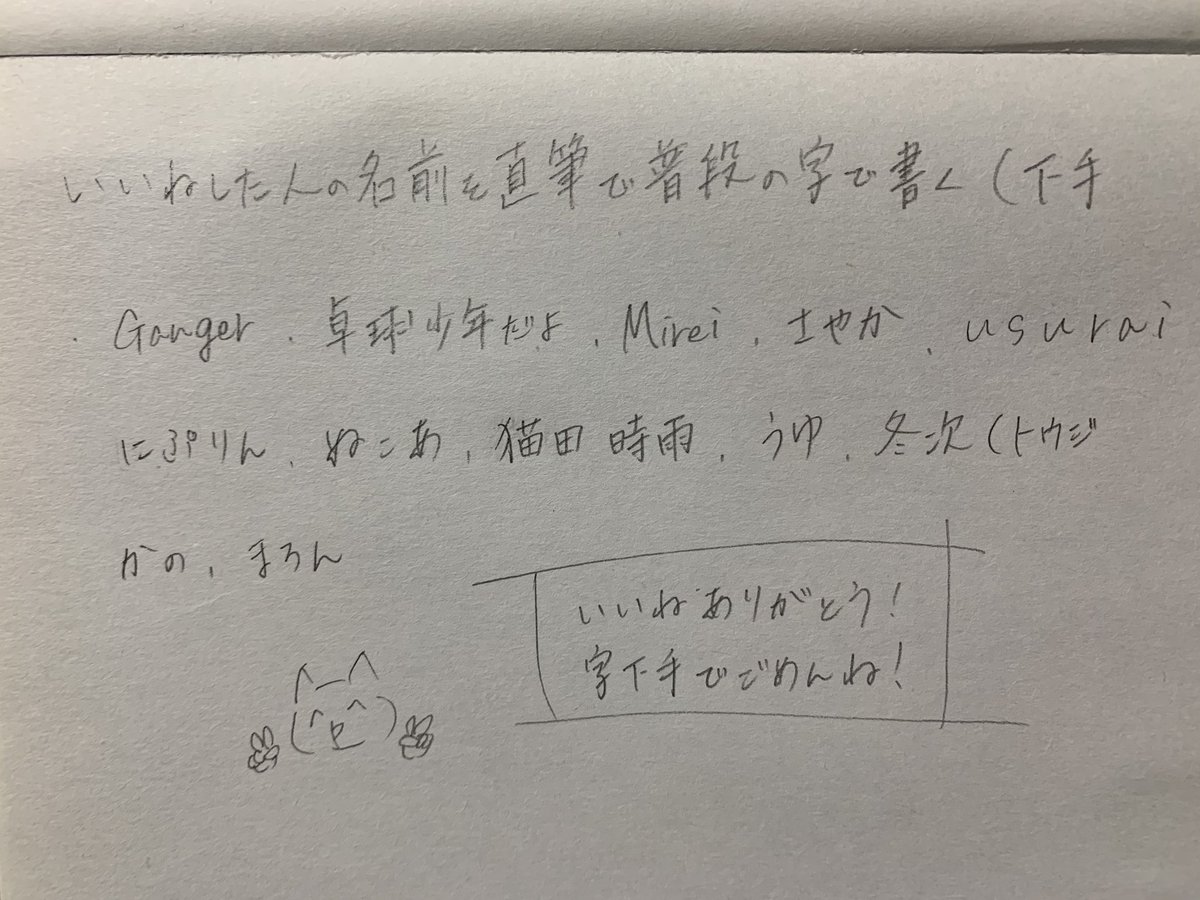 いいねした人の名前を直筆で普段の字で書く(下手
・Ganger、卓球少年だよ、Mirei、さやか、usurai
にぷりん、ねこあ、猫田時雨、うゆ、冬次(トウジ
かの、まろん
いいねありがとう!
字下手でごめんね!